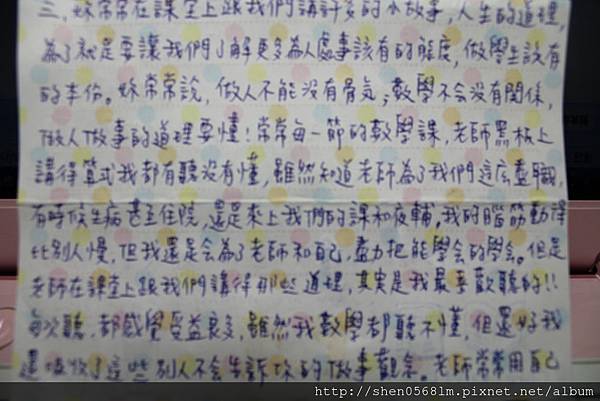 三、妳常常在課堂上跟我們講許多的小故事,人生的道理,
為了就是要讓我們了解更多為人處事該有的態度,做學生該有
的本份。妳常常說,做人不能沒有骨氣;數學不会没有関係,
做人做事的道理要懂!常常每一節的數學課,老師黑板上
講得算式我都有聽没有懂,雖然知道老師為了我們這広盡職,
有時候生病甚至住院,還是來上我們的課和夜輔,我的腦筋動得
比別人慢,但我還是会為了老師和自己,盡力把能學会的學会。但是
老師在課堂上跟我們講得那些道理,其实是我最喜歡聽的!!
每次聽,都感覺受益良多,雖然我數學都聽不懂,但還好我
還吸收了這些別人不会告訴你的做事觀念。老師常常用自己
http://shen0568lm.pixnet.net/album